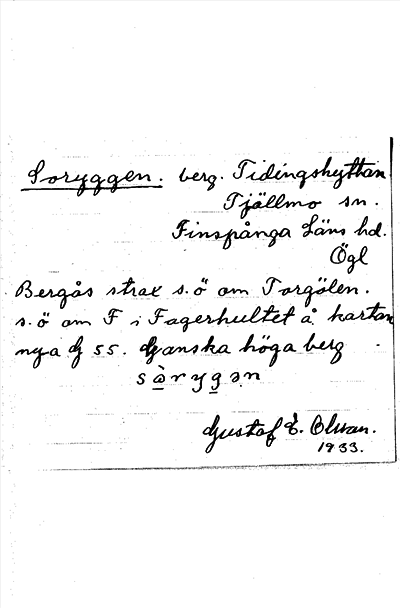 Soryggen. berg. Tidingshyttan
Tjällmo sn.
Finspånga Läns hd.
Ögl
Bergås strax s.ö om Torgölen.
s.ö om F i Fagerhultet å kartan
nya G 55. Ganska höga berg
sàrygən
Gustaf E. Olsson.
1933.